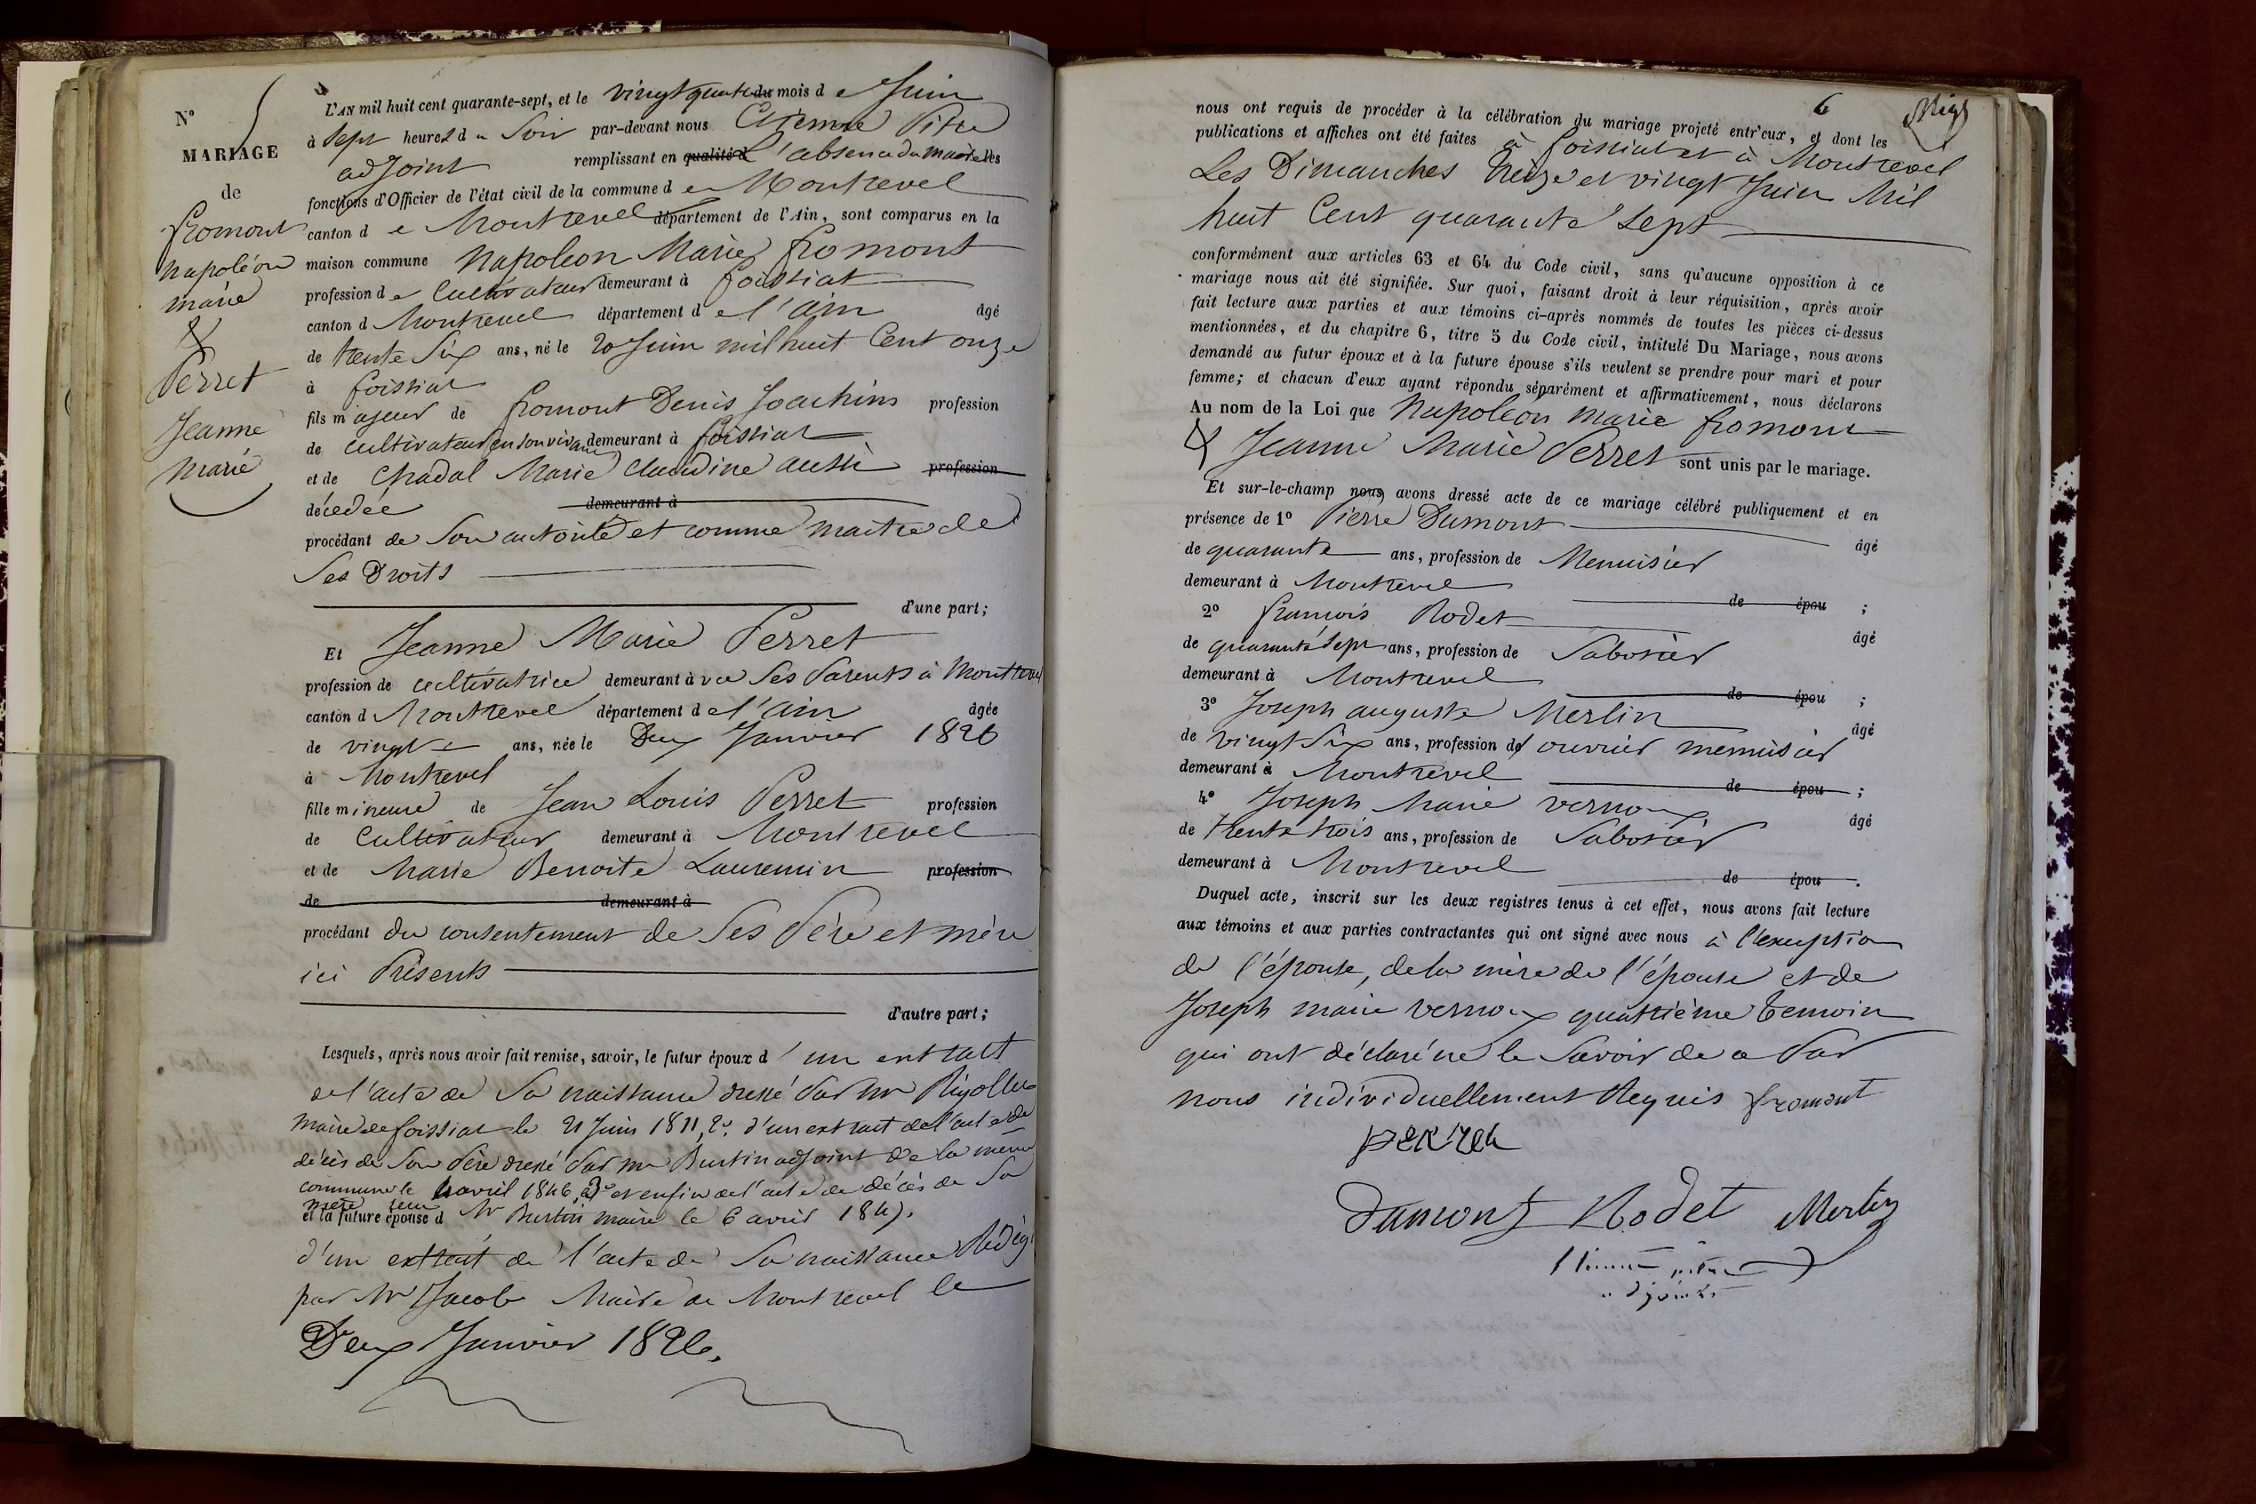 N° 5
MARIAGE
de
fromont
napoléon
marie
&
Perret
Jeanne
marie
L'AN mil huit cent quarante-sept, et le vingt quatre du mois de Juin
à sept heures du Soir par-devant nous Etienne Pitre
adjoint remplissant en qualité d L'absence du maire les
fonctions d'Officier de l'état civil de la commune de Montrevel
canton de Montrevel département de l'Ain, sont comparus en la
maison commune Napoléon Marie fromont
profession de Cultivateur demeurant à foissiat
canton d Montrevel département de l'ain âgé
de trente Six ans, né le 20 Juin mil huit Cent onze
à foissiat
fils majeur de fromont Denis Joachim profession
de cultivateur en son vivant demeurant à foissiat
et de Chadal Marie Claudine aussi profession
décedée demeurant à
procédant de Son autorité et comme maitre de
Ses Droits
d'une part;
Et Jeanne Marie Perret
profession de cultivatrice demeurant avec Ses Parents à Montrevel
canton d Montrevel département de l'ain âgée
de vingt ans, née le Deux Janvier 1826
à Montrevel
fille mineure de Jean Louis Perret profession
de Cultivateur demeurant à Montrevel
et de Marie Benoite Laurencin profession
de demeurant à
procédant du consentement de Ses Père et mère
ici Présents
d'autre part;
Lesquels, après nous avoir fait remise, savoir, le futur époux d'un extrait
de l'acte de Sa naissance dressé Par Mr Rigollet
maire de foissiat le 21 Juin 1811, 2° d'un extrait de l'acte de
décès de Son Père dressé Par mr Burtin adjoint de la même
commune le avril 1846, 3° et enfin de l'acte de décès de Sa
mère
et la future épouse d Mr Burtin maire le 6 avril 1847.
d'un extrait de l'acte de Sa naissance Rédigé
par Mr Jacob Maire de Montrevel le
Deux Janvier 1826.
6
nous ont requis de procéder à la célébration du mariage projeté entr'eux, et dont les
publications et affiches ont été faites à foissiat et à Montrevel
Les Dimanches treize et vingt Juin Mil
huit Cent quarante Sept
conformément aux articles 63 et 64 du Code civil, sans qu'aucune opposition à ce
mariage nous ait été signifiée. Sur quoi, faisant droit à leur réquisition, après avoir
fait lecture aux parties et aux témoins ci-après nommés de toutes les pièces ci-dessus
mentionnées, et du chapitre 6, titre 5 du Code civil, intitulé Du Mariage, nous avons
demandé au futur époux et à la future épouse s'ils veulent se prendre pour mari et pour
femme; et chacun d'eux ayant répondu séparément et affirmativement, nous déclarons
Au nom de la Loi que Napoléon marie fromont
& Jeanne Marie Perret sont unis par le mariage.
Et sur-le-champ nous avons dressé acte de ce mariage célébré publiquement et en
présence de 1° Pierre Dumont âgé
de quarante ans, profession de Menuisier
demeurant à Montrevel de épou ;
2° francois Rodet âgé
de quarante Sept ans, profession de Sabotier
demeurant à Montrevel de épou ;
3° Joseph auguste Merlin âgé
de vingt Six ans, profession d' ouvrier menuisier
demeurant à Montrevel de épou ;
4° Joseph Marie vernoux âgé
de trente trois ans, profession de Sabotier
demeurant à Montrevel de épou .
Duquel acte, inscrit sur les deux registres tenus à cet effet, nous avons fait lecture
aux témoins et aux parties contractantes qui ont signé avec nous à l'exception
de l'épouse, de la mère de l'épouse et de
Joseph marie vernoux quatrième temoin
qui ont déclaré ne le Savoir de ce Par
nous individuellement Requis fromont
perret
Dumont Rodet Merlin
Etienne pitre
adjoint